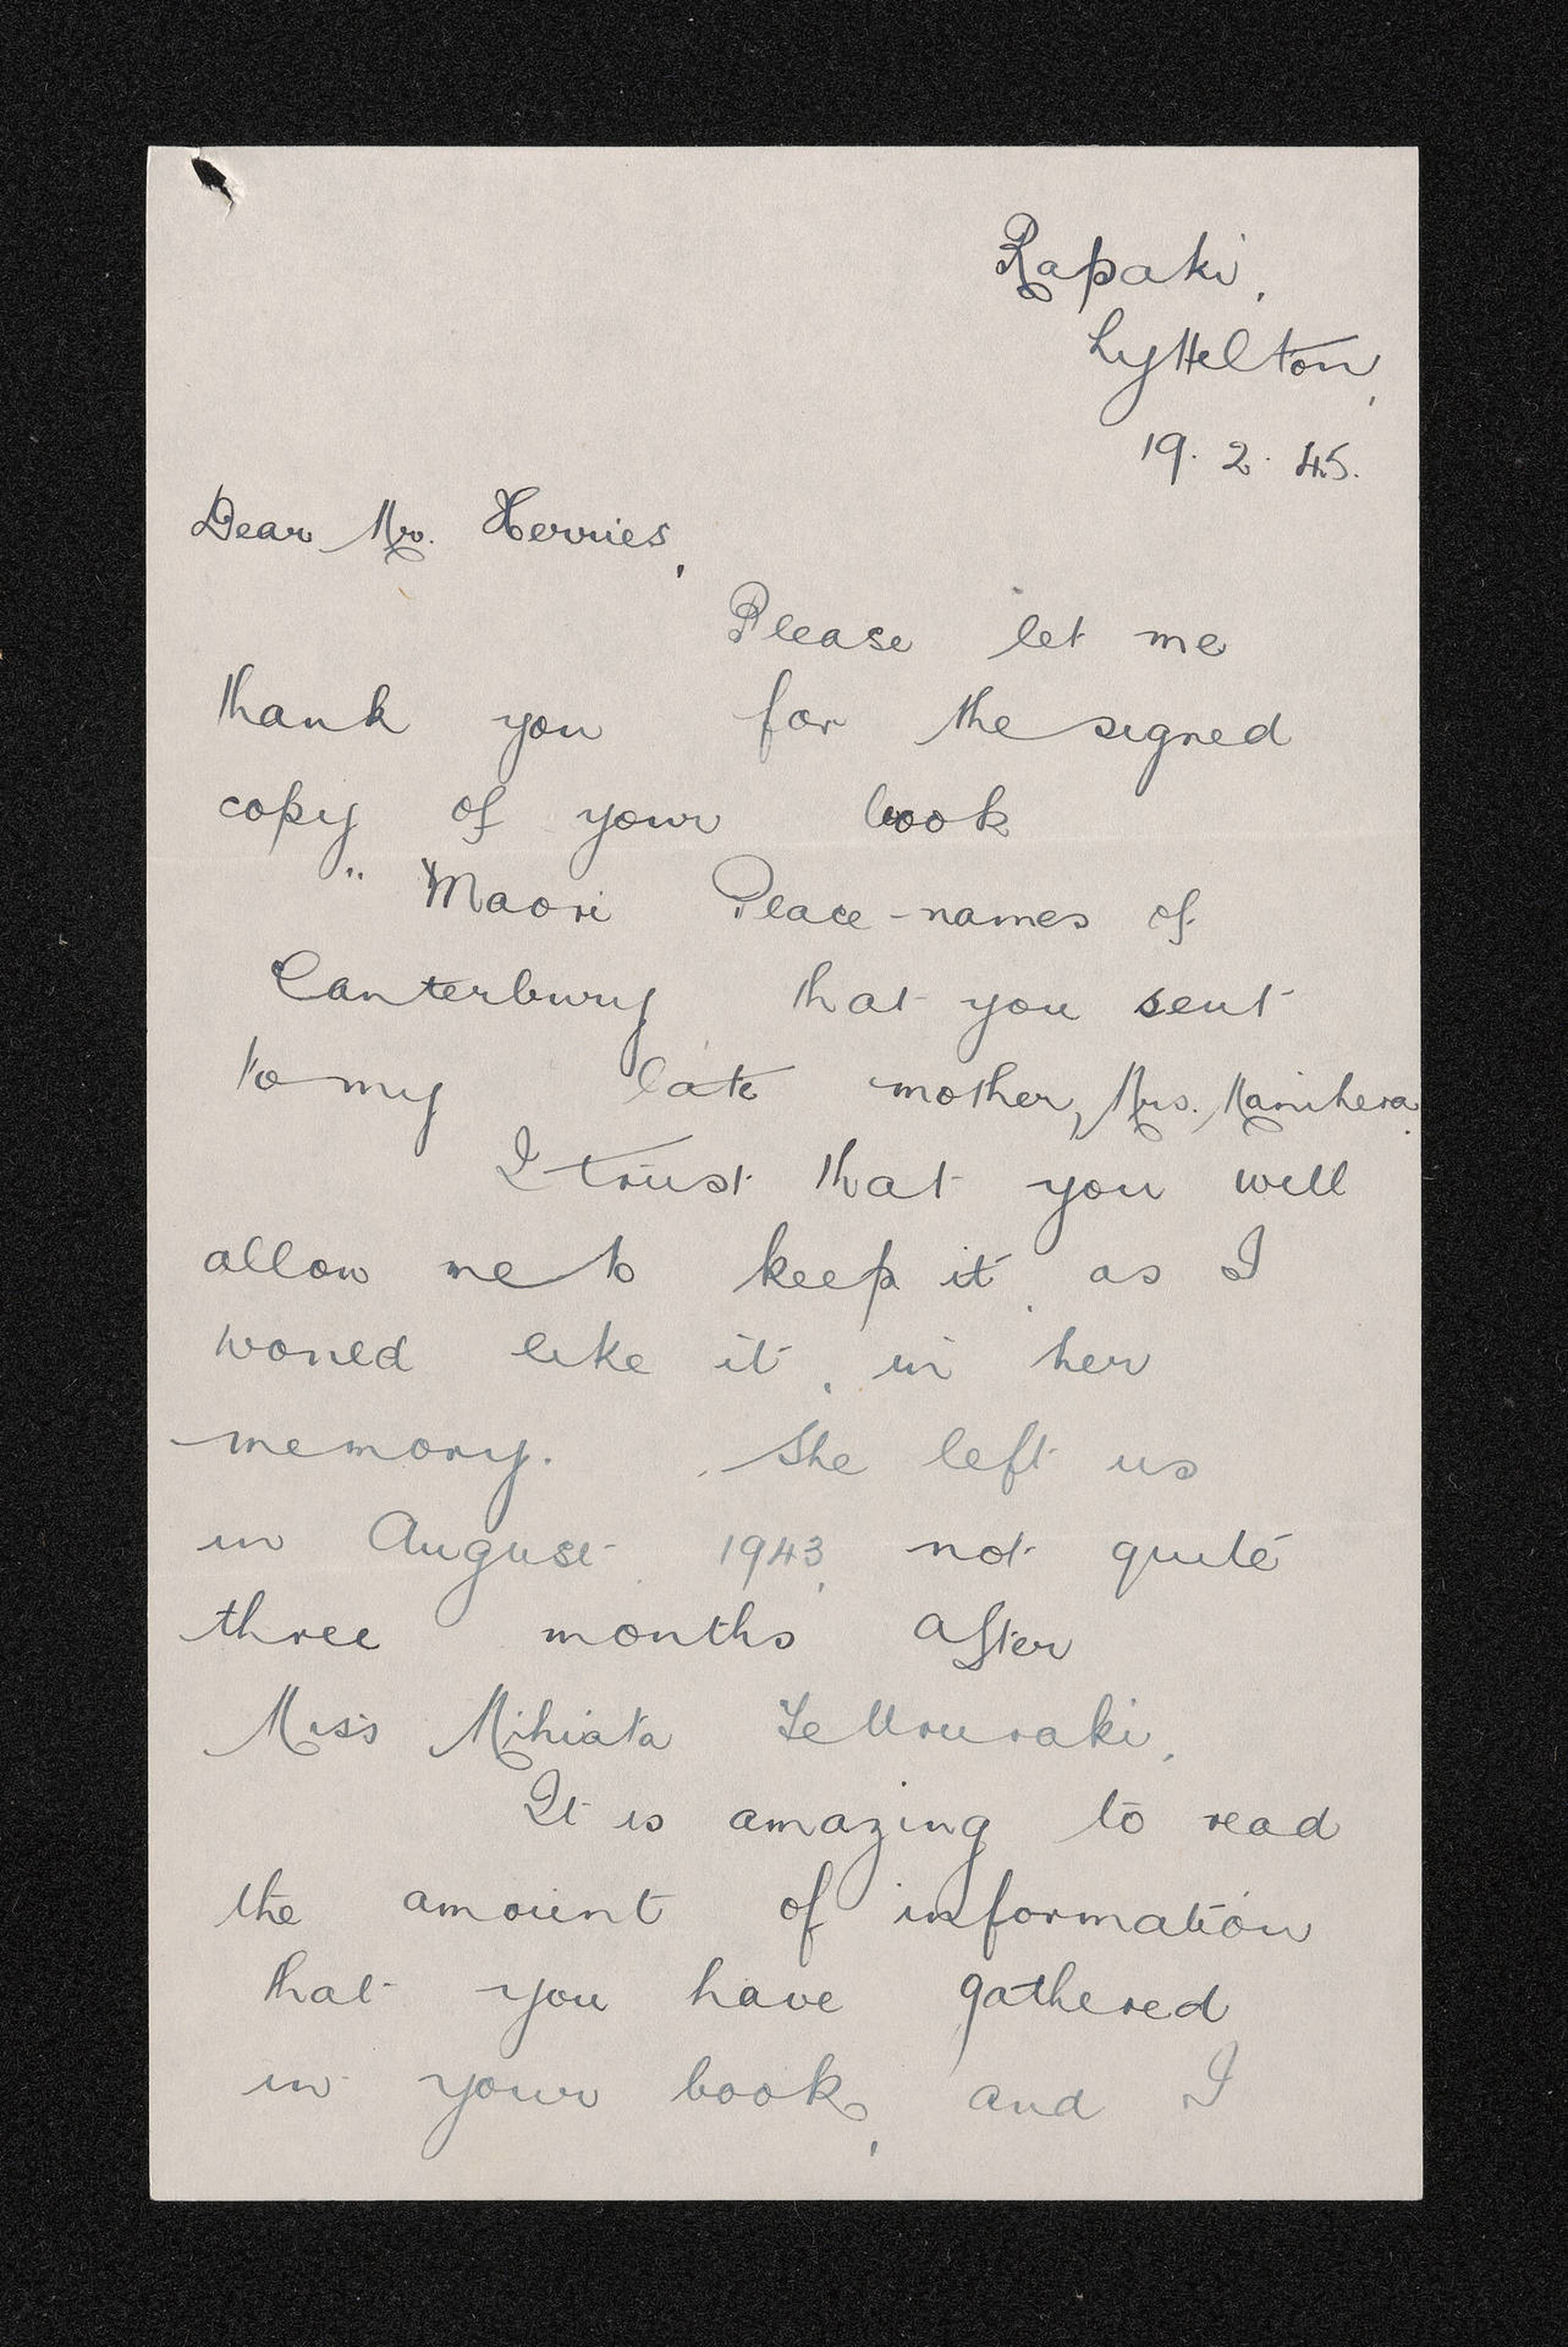 Rapaki,
Lyttelton,
19. 2. 45.
Dear Mr. Herries,
Please let me
thank you for the signed
copy of your book
" Maori Place-names of
Canterbury that you sent
to my late mother, Mrs. Manihera.
I trust that you will
allow me to keep it, as I
would like it, in her
memory. She left us
in August, 1943, not quite
three months after
Miss Mihiata Te Ururaki.
It is amazing to read
the amount of information
that you have gathered
in your book, and I